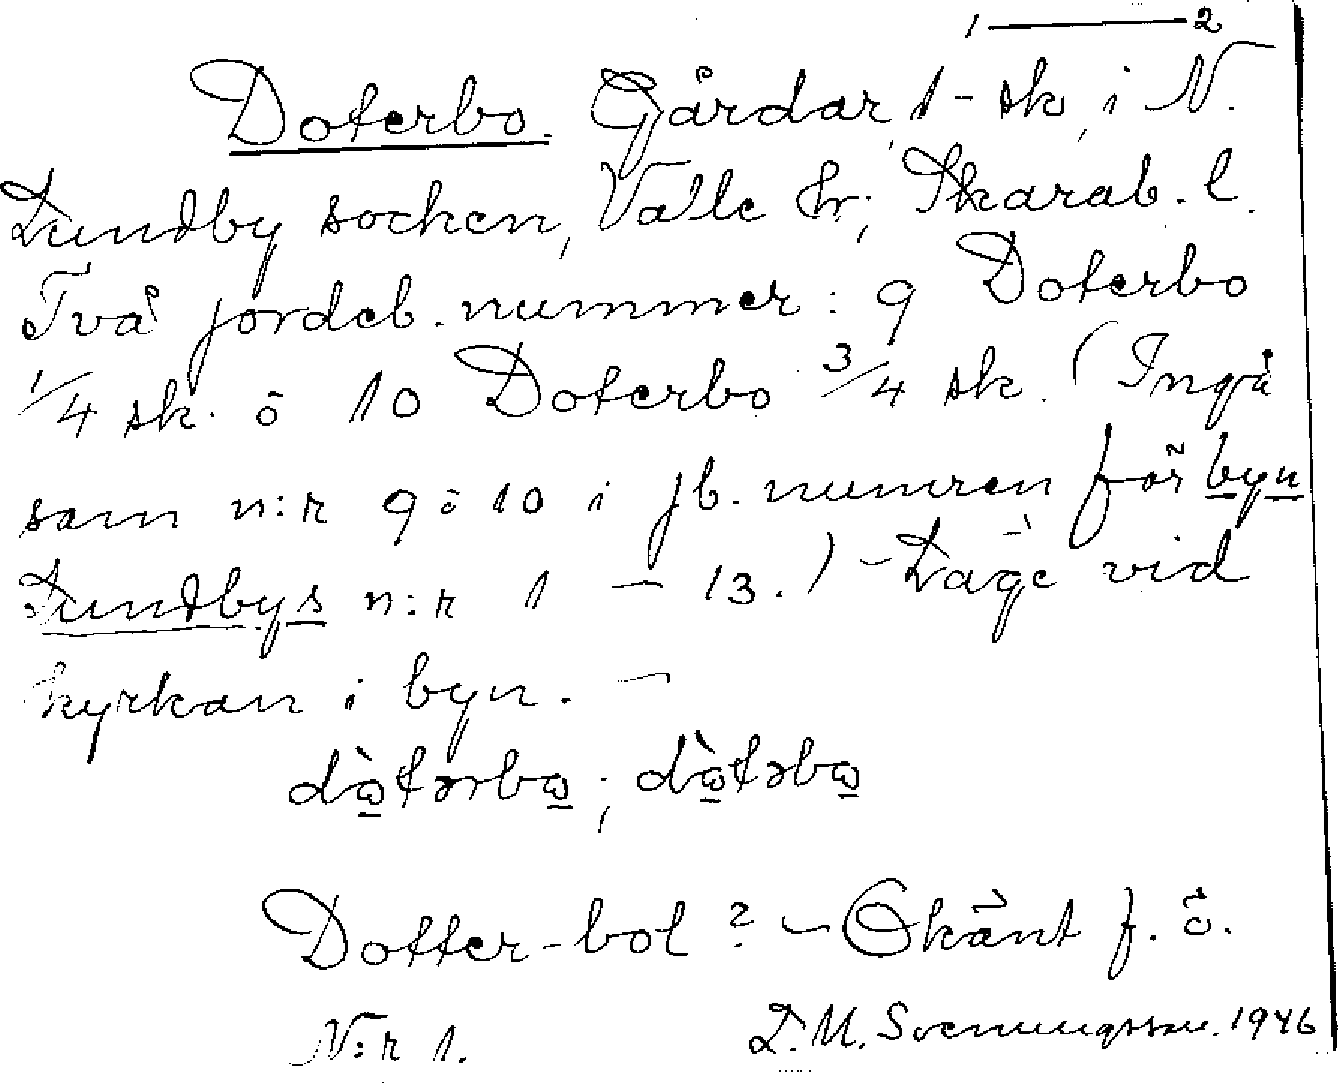 1 — 2
Doterbo. Gårdar, 1 - sk, i N.
Lundby socken, Valle hr; Skarab. l.
Två jordeb. nummer: 9 Doterbo
1/4 sk. o 10 Doterbo 3/4 sk. (Ingå
som n:r 9 o 10 i jb. numren för byn
Lundbys n:r 1 — 13.) - Läge vid
kyrkan i byn. —
Dotter-bol? - Okänt f. ö.
N:r 1. L. M. Svenungsson. 1946